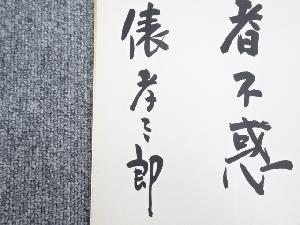 者不惑
俵孝太郎